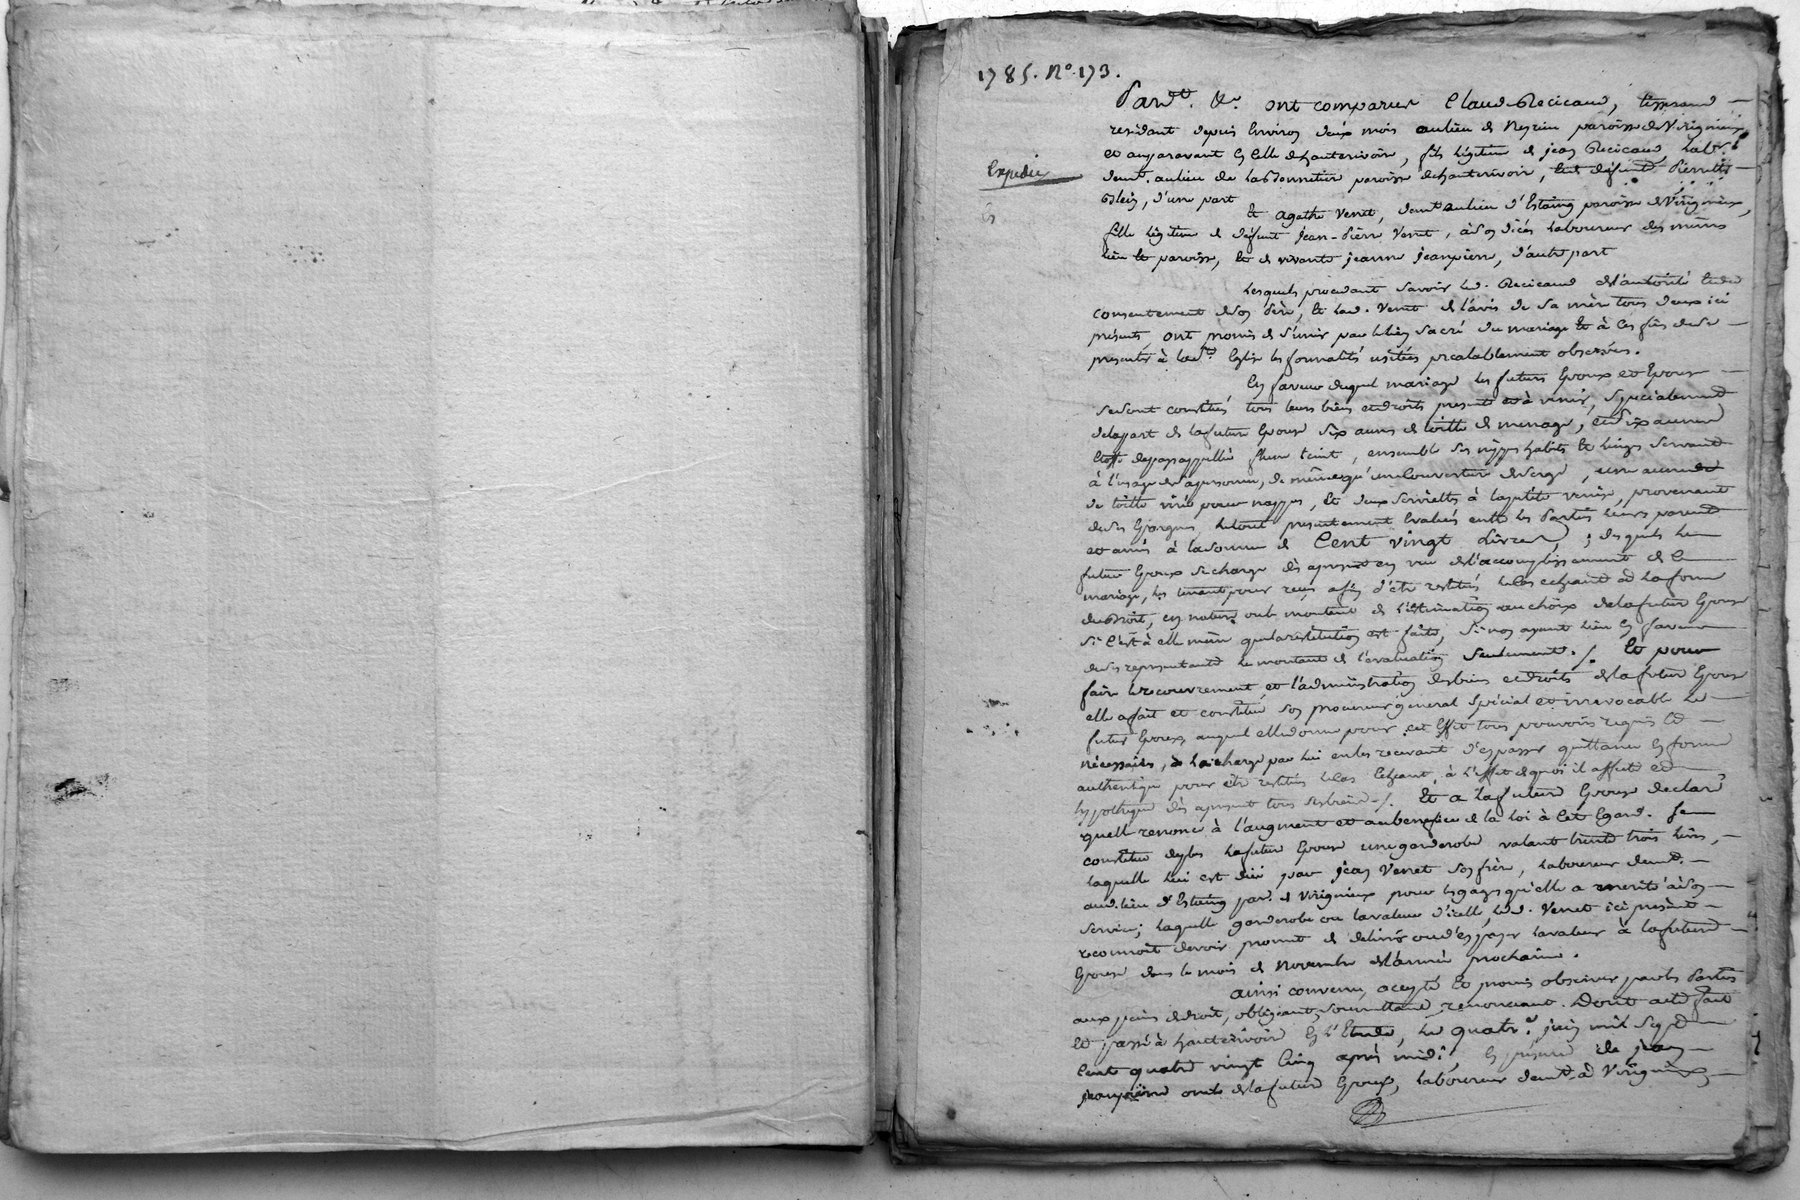 1785. N°. 173.
Pard^t. &^a. ont comparus Claud Recicaud, tisserand
residant depuis Environ deux mois au lieu de paroisse de Virignieux
et auparavant En Celle d'hauterivoir, fils légitime de jean Recicaud, lab^r.
Expédié
dem^t. au lieu de paroisse d'hauterivoir, Et de défunte Pierrette
d'une part
Et agathe Verret, dem^t au lieu d'Estaing paroisse de Virignieux,
fille légitime de défunt jean-Pierre Verret, à Son décès Laboureur des mêmes
Lieu et paroisse, Et de vivante jeanne jeanpierre, d'autre part
Lesquels procédant Savoir Led. Recicaud de l'autorité Et du
consentement de Son Père, Et Lad. Verret de l'avis de Sa mère tous deux ici
présents, ont promis de S'unir par le lien Sacré du mariage Et à Ces fins de Se
présenter à Eglise les formalités usitées préalablement observées.
En faveur duquel mariage Les futurs Epoux et Epouse
Se Sont constitués tous leurs biens et droits présents et à venir, Spécialement
de la part de la future Epouse Six aunes de toille de ménage, et dix aunes
Etoffe du pays appellée teint, ensemble Ses nippes habits Et linges Servant
à l'usage de Sa personne, de même qu'une Couverture de Serge, une aune
de toille pour nappes, Et deux Serviettes à la petite Venise, provenant
de Ses Epargnes, Le tout présentement Evalués entre les Parties Leurs parents
et amis à la Somme de Cent vingt Livres, desquels Le
futur Epoux Se charge dès àprésent en vue de l'accomplissement de Ce
mariage, les tenant pour reçus afin d'être restitués Le Cas echeant en La forme
du Droit, en nature ou le montant de L'Estimation au choix de la future Epouse
Si C'est à elle même que la restitution est faite, Si non ayant lieu En faveur
de Ses représentants Le montant de l'évaluation Seulement ./. Et pour
faire Le recouvrement et l'administration des biens et droits de la future Epouse
elle a fait et constitué Son procureur général Spécial et irrévocable Le
futur Epoux, auquel elle donne pour cet Effet tous pouvoirs requis Et
nécessaires, à La charge par lui en les recevant d'en passer quittance En forme
authentique pour être restitués Le Cas Echeant, à L'effet de quoi il affecte et
hypothèque dès àprésent tous Ses biens ./. Et a La future Epouse déclaré
qu'elle renonce à l'augment et au bénéfice de la loi à Cet Egard. Se
constitue de plus La future Epouse une garderobe valant trente trois livres,
laquelle Lui est due par jean Verret Son frère, Laboureur dem^t.
aud. lieu d'Estaing par. de Virignieux pour Les gages qu'elle a merité à Son
Service; laquelle garderobe ou la valeur d'icelle, Led. Verret ici présent
reconnoit devoir promet de délivrer ou d'en payer la valeur à la future
Epouse dans le mois de Novembre de l'année prochaine.
ainsi convenu, accepté Et promis observer par les Parties
aux peines de droit, obligeant, Soumettant, renonçant. Dont acte fait
Et passé à hauterivoir En l'Etude, Le quatr^e. juin mil Sept
Cent quatre vingt Cinq après midi, En présence de jean
jeanpierre oncle de la future Epouse, Laboureur dem^t. à Virignieux,